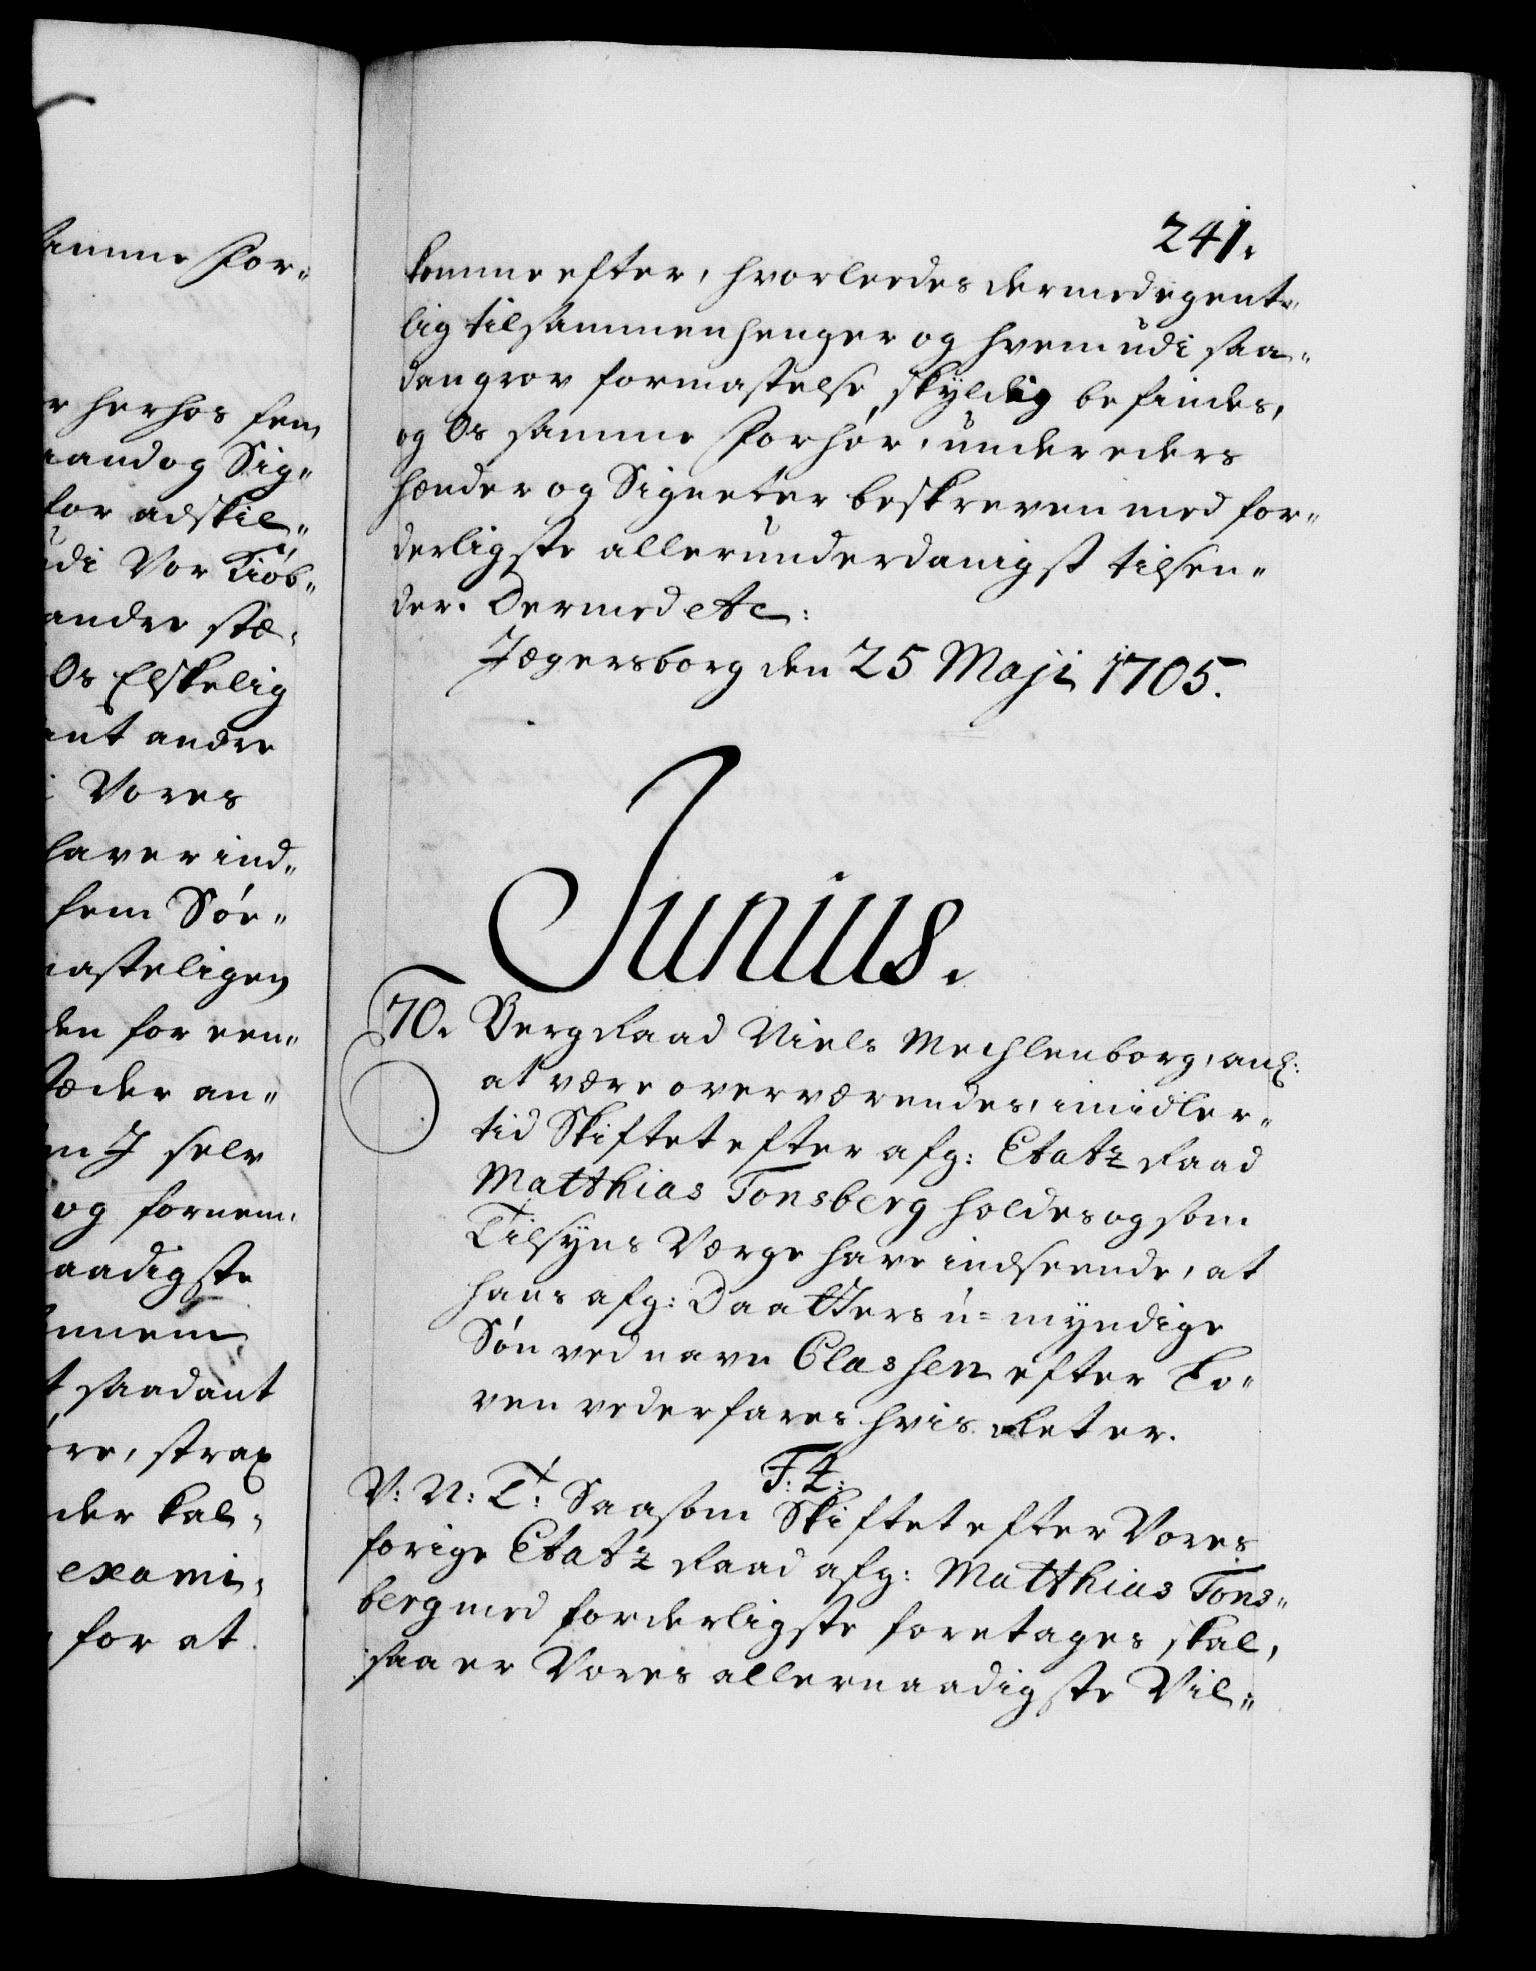 amme For„
r herhos fem
aand og Sig„
for adskil„
udi Vor Kiøb„
andre stæ„
Os Elskelig
ant andre
i Vores
haver ind„
fem Sør„
masteligen
den for een„
stæder an„
m I selv
og fornem„
aadigste
nnem
t saadant
re, strax
der kal„
exami„
for at
241.
komme efter, hvorledes dermed egent„
lig tilsammenhenger og hvem udi saa„
dan grov formastelse skyldig befindes,
og Os samme Forhør, under eders
hænder og Signeter beskreven med for„
derligste allerunderdanigst tilsen„
der. Dermed etc:
Jægersborg den 25 Maji 1705.
Junius.
70. BergRaad Niels Mechlenborg, anl:
at være overværendes, imidler„
tid Skiftet efter afg: Etatz Raad
Matthias Tonsberg holdes og som
Tilsyns Værge have indseende, at
hans afg: Daatters u=myndige
Søn ved navn Clashen efter Lo„
ven vederfares hvis Ret er.
F: 4:
V: N: T: Saasom Skiftet efter Vores
forige Etatz Raad afg: Matthias Tons„
berg med forderligste foretages skal,
saa er Vores allernaadigste Vil„